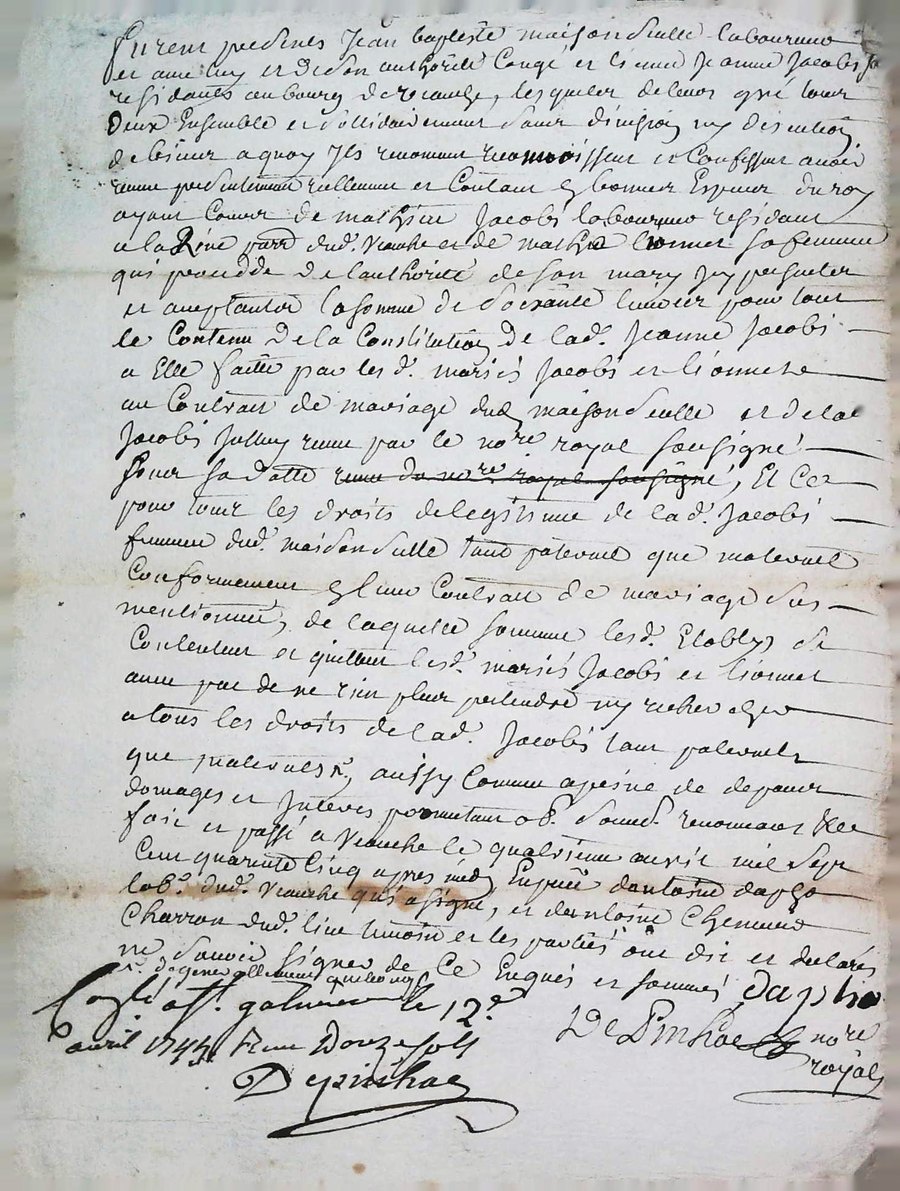 furent presents Jean baptiste maisonseulle laboureur
et avec luy et de son authorité Congé et licence Jeanne Jacobs
residants au bourg de vranche, lesquels de leur gré tous
Deux Ensemble et sollidairement sans division ny discution
de biens a quoy Ils renoncent reconnoissent et Confessent avoir
receu presentement reellement et Contant En bonnes Especes du roy
ayant Cours de mathieu Jacobs laboureur residant
a la parr. dud. vranche et de lionnet sa femme
qui procedde de l'authorité de son mary Icy presentes
et acceptantes la somme de soixante livres pour tout
le Contenu de la Constitution de lad. Jeanne Jacobs
a Elle faitte par les d. mariés Jacobs et lionnete
au Contrait de mariage dud maisonseulle et de la
Jacobs Jolluy receu par le nore. royal sousigné
sous sa datte receu du nore. royal sousigné, Et Ces
pour tous les droits de legitime de lad. Jacobs
femme dud. maisonseulle tant paternel que maternel
Conformement Contrait de mariage sus
mentionné, de laquelle somme lesd. Etablys se
Contentent et quittent lesd. mariés Jacobs et lionnet
avec pac de ne rien plus pretendre ny rechercher
a tous les droits de lad. Jacobs tant paternels
que maternels, aussy Comme a peine de depans
domages et Interes promettant ob. soumd. renonceant &ce
fait et passé a vranche le quatrieme avril mil sept
Cent quarente Cinq apres midy En presence d'antoine dapho
lab. dud. vranche qui a signé, et d'antoine
Charron dud. lieu temoins et les parties ont dit et declarés
ne savoir signer de Ce Enquis et sommés dapho
le 12e.
avril 1745 Receu Douze sols De Pinhac nore
Depinhac royal